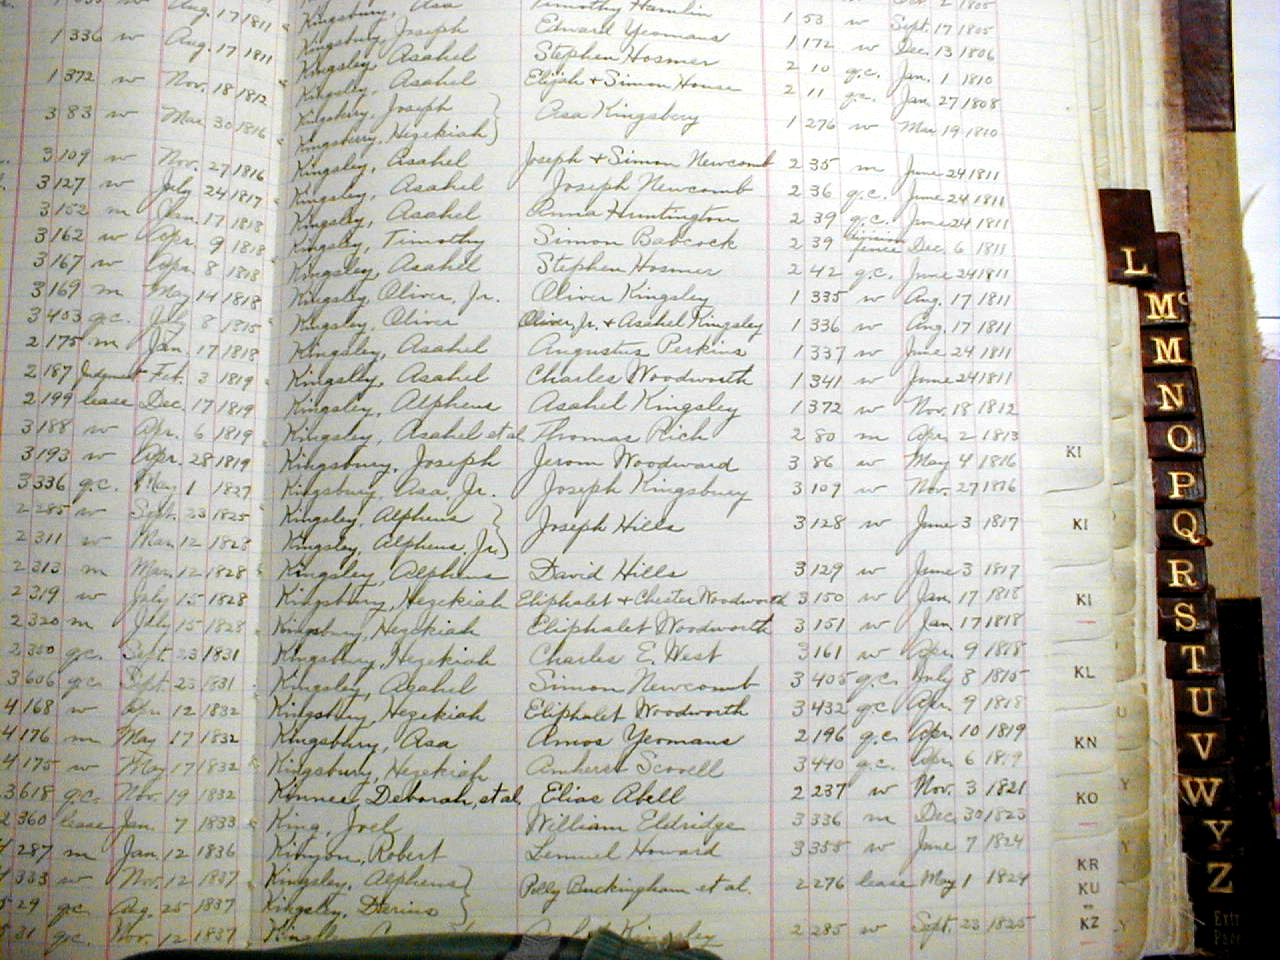 Kingsbury, Asa Timothy Hamlin 1 53 w Sept. 17 1805
1 336 w Aug. 17 1811 Kingsbury, Joseph Edward Yeomans 1 172 w Dec. 13 1806
Kingsley, Asahel Stephen Hosmer 2 10 g.c. Jan. 1 1810
1 372 w Nov. 18 1812 Kingsley, Asahel Elijah + Simon House 2 11 g.c. Jan. 27 1808
3 83 w Mar. 30 1816 Kingsbury, Joseph Asa Kingsbury 1 276 w Mar 19 1810
Kingsbury, Hezekiah
3 109 w Nov. 27 1816 Kingsley, Asahel Joseph + Simon Newcomb 2 35 m June 24 1811
3 127 w July 24 1817 Kingsley, Asahel Joseph Newcomb 2 36 g.c. June 24 1811
3 152 m Jan. 17 1818 Kingsley, Asahel Anna Huntington 2 39 g.c. June 24 1811
3 162 w Apr. 9 1818 Kingsley, Timothy Simon Babcock 2 39 division fence Dec. 6 1811
3 167 w Apr. 8 1818 Kingsley, Asahel Stephen Hosmer 2 42 g.c. June 24 1811
3 169 m May 14 1818 Kingsley, Oliver, Jr. Oliver Kingsley 1 335 w Aug. 17 1811
3 403 g.c. July 8 1815 Kingsley, Oliver Oliver, Jr. + Asahel Kingsley 1 336 w Aug. 17 1811
2 175 m Jan. 17 1818 Kingsley, Asahel Augustus Perkins 1 337 w June 24 1811
2 187 Judgment Feb. 3 1819 Kingsley, Asahel Charles Woodworth 1 341 w June 24 1811
2 199 lease Dec. 17 1819 Kingsley, Alpheus Asahel Kingsley 1 372 w Nov. 18 1812
3 188 w Apr. 6 1819 Kingsley, Asahel et al Thomas Rich 2 80 m Apr. 2 1813
3 193 w Apr. 28 1819 Kingsbury, Joseph Jerom Woodward 3 86 w May 4 1816
3 336 g.c. May 1 1827 Kingsbury, Asa, Jr. Joseph Kingsbury 3 109 w Nov. 27 1816
2 285 w Sept. 23 1825 Kingsley, Alpheus Joseph Hills 3 128 w June 3 1817
2 311 w Mar. 12 1828 Kingsley, Alpheus, Jr.
2 313 m Mar. 12 1828 Kingsley, Alpheus David Hills 3 129 w June 3 1817
2 319 w July 15 1828 Kingsbury, Hezekiah Eliphalet + Chester Woodworth 3 150 w Jan. 17 1818
2 320 m July 15 1828 Kingsbury, Hezekiah Eliphalet Woodworth 3 151 w Jan 17 1818
2 350 g.c. Sept. 23 1831 Kingsbury, Hezekiah Charles E. West 3 161 w Apr. 9 1818
3 606 g.c. Sept. 23 1831 Kingsley, Asahel Simon Newcomb 3 405 g.c. July 8 1815
4 168 w Apr. 12 1832 Kingsbury, Hezekiah Eliphalet Woodworth 3 432 g.c. Apr. 9 1818
4 176 m May 17 1832 Kingsbury, Asa Amos Yeomans 2 196 g.c. Apr. 10 1819
4 175 w May 17 1832 Kingsbury, Hezekiah Amherst Scovell 3 440 g.c. Apr. 6 1819
3 618 g.c. Nov. 19 1832 Kinnee, Deborah, et al Elias Abell 2 237 w Nov. 3 1821
2 360 lease Jan. 7 1833 King, Joel William Eldridge 3 336 m Dec. 30 1823
287 m Jan. 12 1836 Kinyon, Robert Lemuel Howard 3 355 w June 7 1824
333 w Nov. 12 1837 Kingsley, Alpheus Polly Buckingham et al. 2 276 lease May 1 1824
29 g.c. Aug. 25 1837 Kingsley, Darius
31 g.c. Nov. 12 1837 Kingsley 2 285 w Sept. 23 1825
KI
KI
KI
KL
KN
KO
KR
KU
KZ
U
Y
Y
Y
L
Mc
M
N
O
P
Q
R
S
T
U
V
W
Y
Z